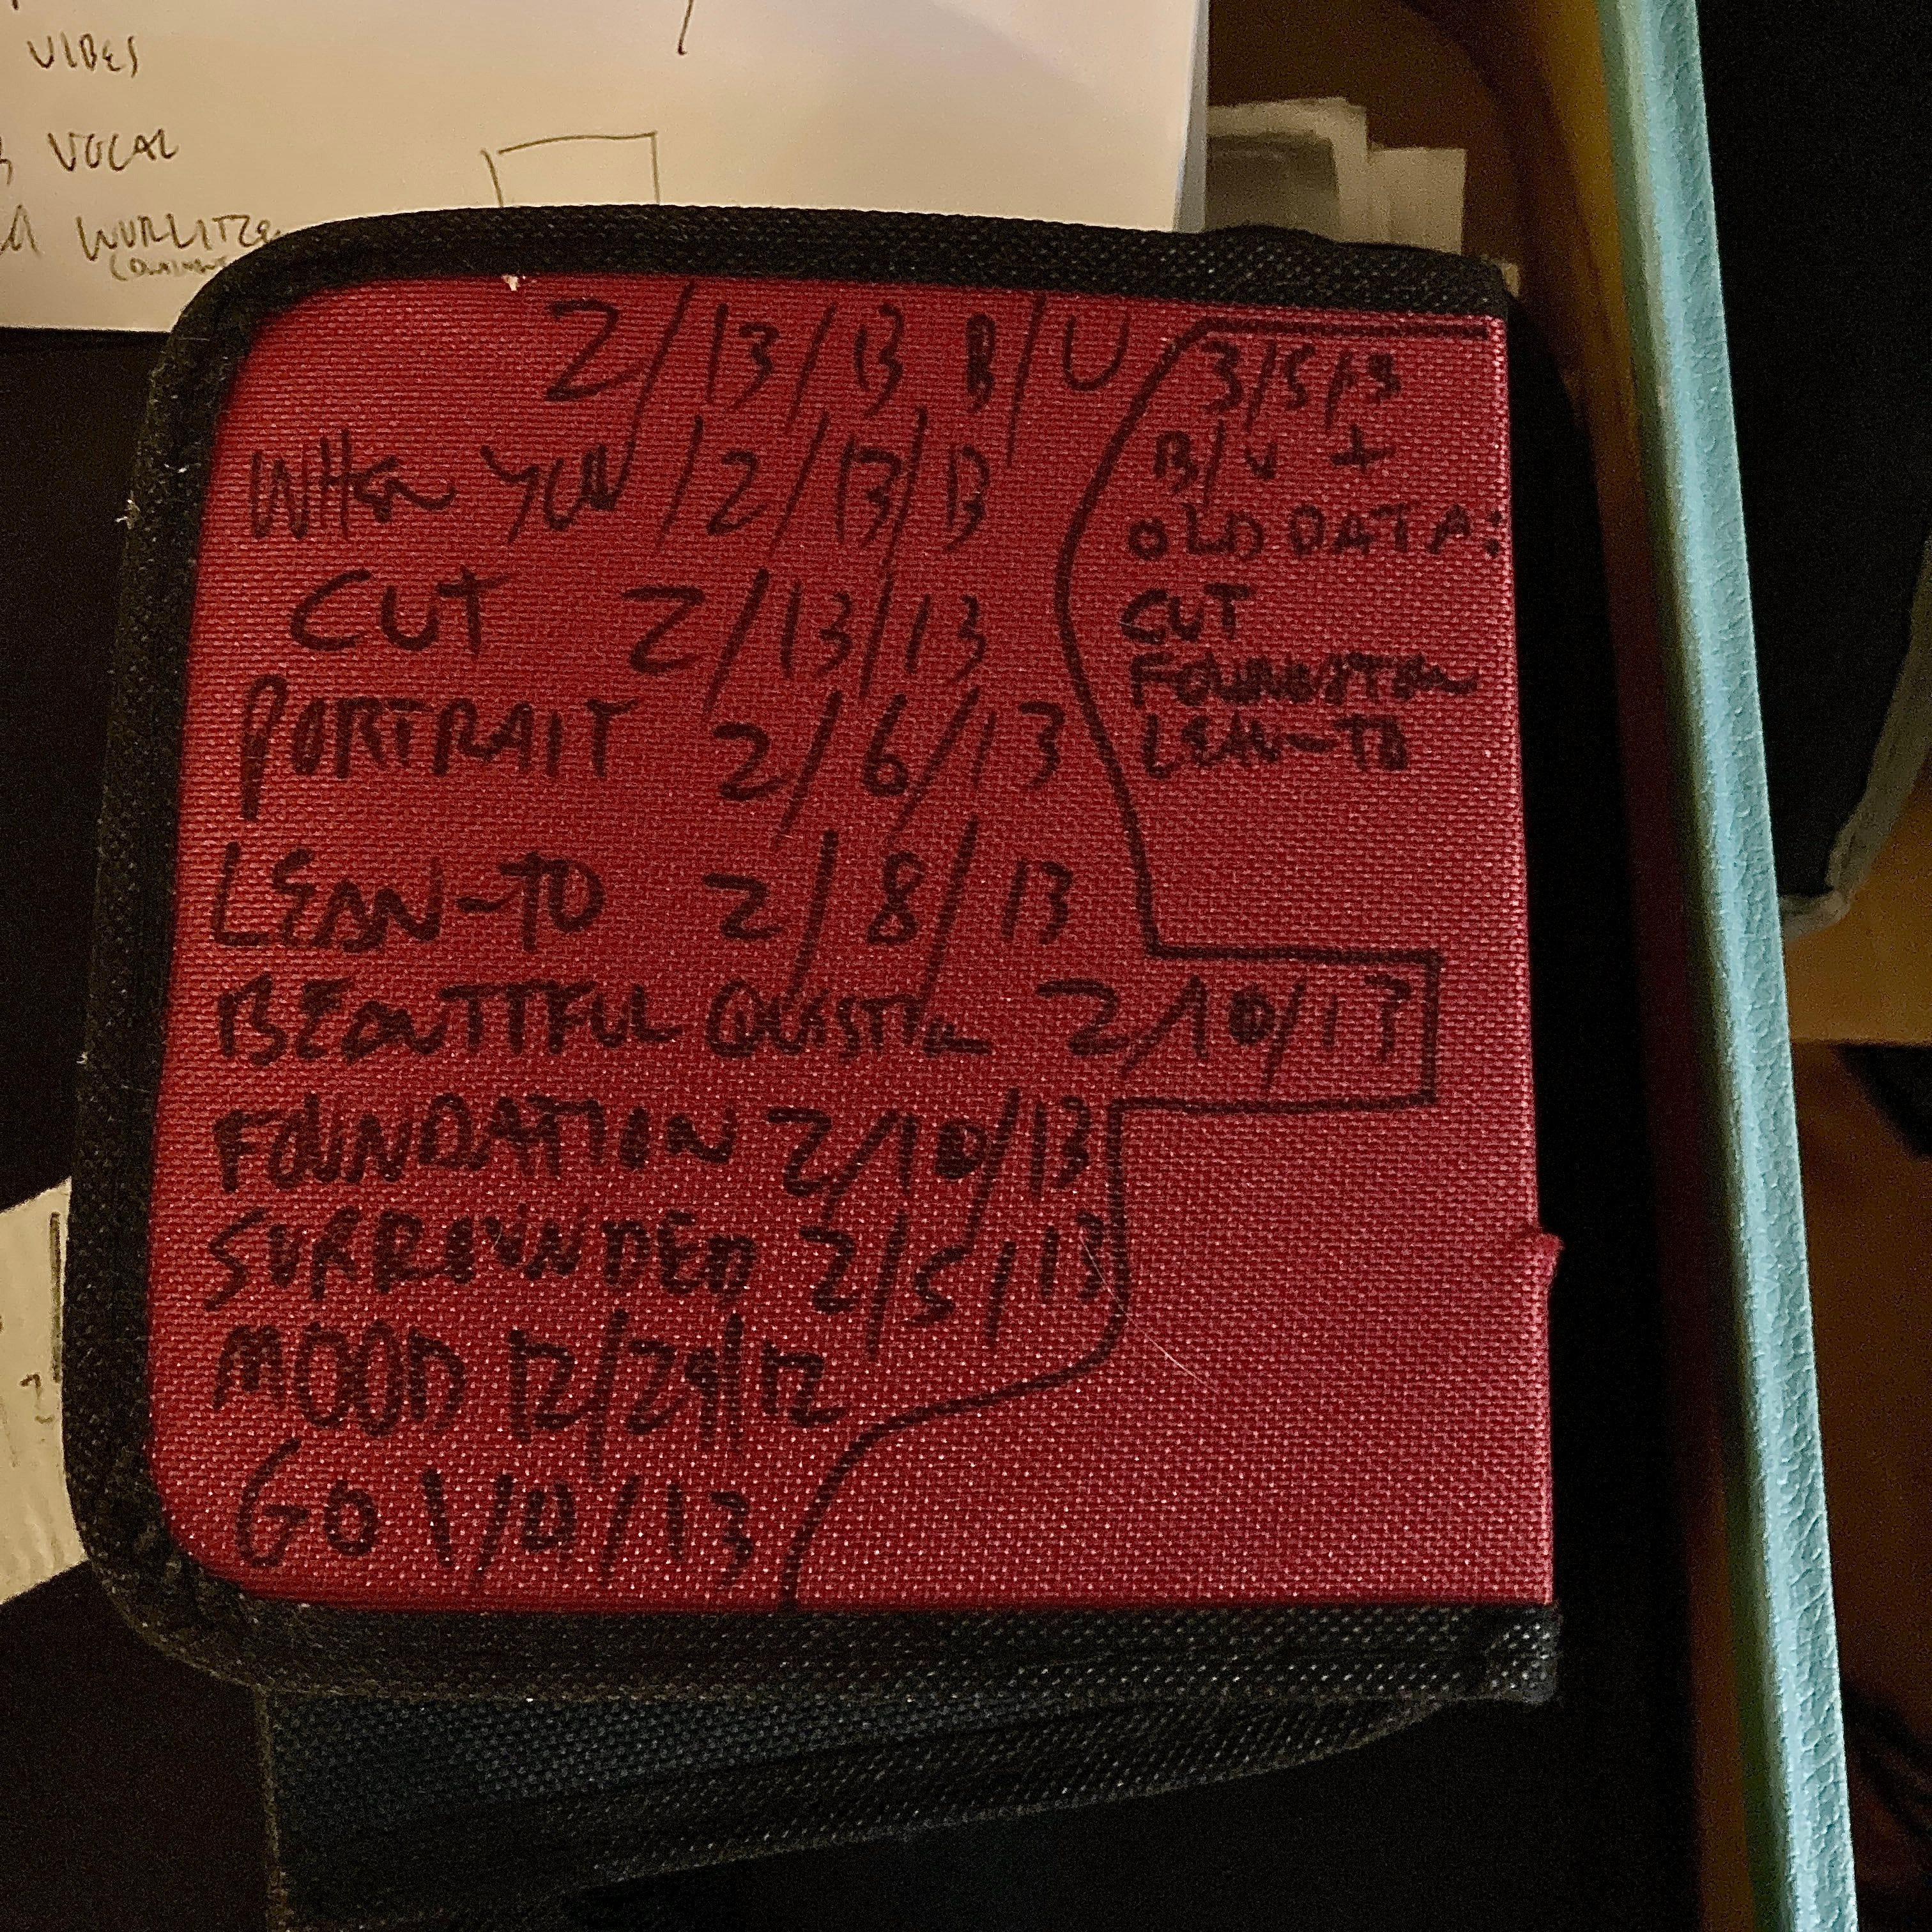 VIBES
VOCAL
WURLITZE
2/13/13 B/U
WHEN YOU / 2/13/13
CUT 2/13/13
PORTRAIT 2/6/13
LEAN-TO 2/8/13
BEAUTIFUL QUESTION 2/10/13
FOUNDATION 2/10/13
SURROUNDED 2/5/13
MOOD 12/29/12
GO
3/5/13
B/U +
OLD DATA:
CUT
FOUNDATION
LEAN-TO